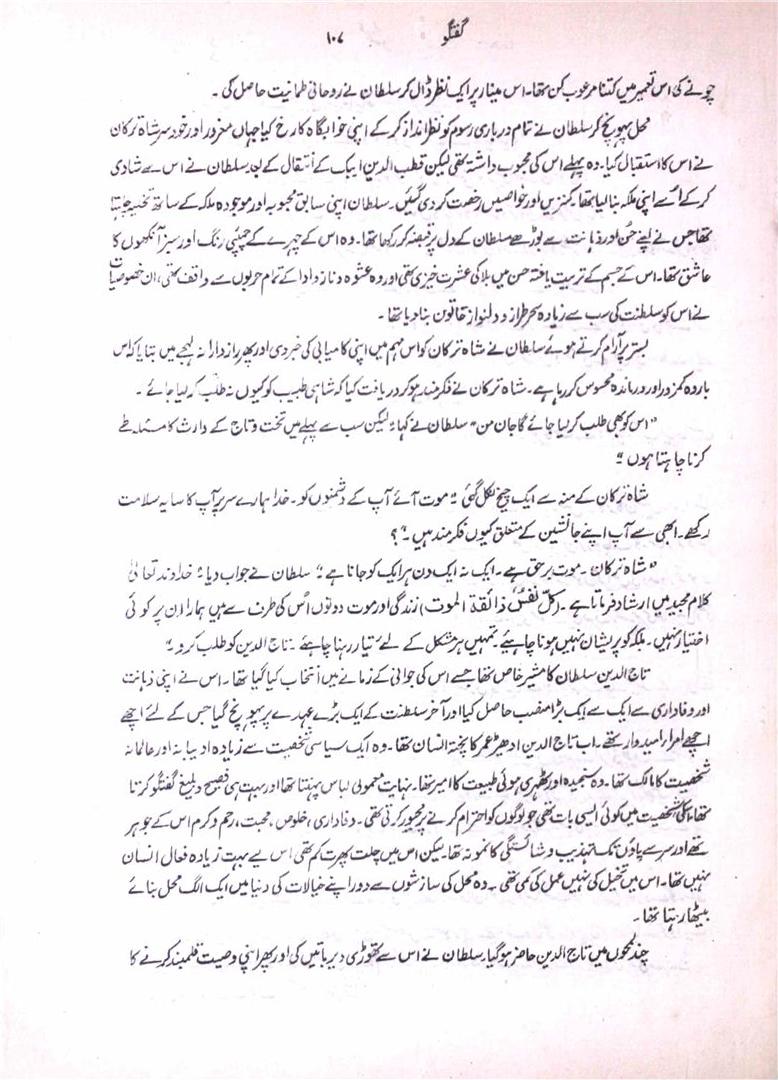 گفتگو ۱۰۷
چونے کی اس تعمیر میں کتنا مرعوب کن تھا۔ اس مینار پر ایک نظر ڈال کر سلطان نے روحانی طمانیت حاصل کی ۔
محل پہونچ کر سلطان نے تمام درباری رسوم کو نظر انداز کر کے اپنی خوابگاہ کا رخ کیا جہاں مغرور اور خود سر شاہ ترکان
نے اس کا استقبال کیا۔ وہ پہلے اس کی محبوب داشتہ تھی لیکن قطب الدین ایبک کے انتقال کے بعد سلطان نے اس سے شادی
کر کے اُسے اپنی ملکہ بنا لیا تھا۔ کنزیں اور خواصیں رخصت کر دی گئیں۔ سلطان اپنی سابق محبوبہ اور موجودہ ملکہ کے ساتھ تخلیہ چاہتا
تھا جس نے اپنے حُسن اور ذہانت سے بوڑھے سلطان کے دل پر قبضہ کر رکھا تھا۔ وہ اس کے چہرے کے چمپئی رنگ اور سبز آنکھوں کا
عاشق تھا۔ اس کے جسم کے تربیت یافتہ حسن میں بلا کی عشرت خیزی تھی اور وہ عشوہ و ناز و ادا کے تمام حربوں سے واقف تھی، ان خصوصیات
نے اس کو سلطنت کی سب سے زیادہ سحر طراز و دلنواز خاتون بنا دیا تھا ۔
بستر پر آرام کرتے ہوئے سلطان نے شاہ ترکان کو اس مہم میں اپنی کامیابی کی خبر دی اور پھر رازدارانہ لہجے میں بتایا کہ اس
بار وہ کمزور اور درماندہ محسوس کر رہا ہے۔ شاہ ترکان نے فکرمند ہو کر دریافت کیا کہ شاہی طبیب کو کیوں نہ طلب کر لیا جائے ۔
"اس کو بھی طلب کر لیا جائے گا جان من" سلطان نے کہا "لیکن سب سے پہلے میں تخت و تاج کے وارث کا مسئلہ طے
کرنا چاہتا ہوں"
شاہ ترکان کے منہ سے ایک چیخ نکل گئی "موت آئے آپ کے دشمنوں کو۔ خدا ہمارے سر پر آپ کا سایہ سلامت
رکھے۔ ابھی سے آپ اپنے جانشین کے متعلق کیوں فکر مند ہیں"؟
"شاہ ترکان ۔ موت برحق ہے۔ ایک نہ ایک دن ہر ایک کو جانا ہے" سلطان نے جواب دیا "خداوند تعالیٰ
کلام مجید میں ارشاد فرماتا ہے۔ (کل نفسٌ ذائقۃ الموت) زندگی اور موت دونوں اُس کی طرف سے ہیں ہمارا ان پر کوئی
اختیار نہیں۔ ملکہ کو پریشان نہیں ہونا چاہئیے۔ تمہیں ہر مشکل کے لئے تیار رہنا چاہئے ۔ تاج الدین کو طلب کرو۔"
تاج الدین سلطان کا مشیر خاص تھا جسے اس کی جوانی کے زمانے میں انتخاب کیا گیا تھا۔ اس نے اپنی ذہانت
اور وفاداری سے ایک سے ایک بڑا منصب حاصل کیا اور آخر سلطنت کے ایک بڑے عہدے پر پہونچ گیا جس کے لئے اچھے
اچھے امراء امیدوار تھے۔ اب تاج الدین ادھیڑ عمر کا پختہ انسان تھا۔ وہ ایک سیاسی شخصیت سے زیادہ ادیبانہ اور عالمانہ
شخصیت کا مالک تھا۔ وہ سنجیدہ اور ٹھہری ہوئی طبیعت کا امیر تھا۔ نہایت معمولی لباس پہنتا تھا اور بہت ہی فصیح و بلیغ گفتگو کرتا
تھا، اسکی شخصیت میں کوئی ایسی بات تھی جو لوگوں کو احترام کرنے پر مجبور کرتی تھی۔ وفاداری، خلوص، محبت، رحم و کرم اس کے جوہر
تھے اور سر سے پاؤں تک تہذیب و شائستگی کا نمونہ تھا۔ لیکن اس میں چلت پھرت کم تھی اس لیے بہت زیادہ فعال انسان
نہیں تھا۔ اس میں تخیل کی نہیں عمل کی کمی تھی۔ وہ محل کی سازشوں سے دور اپنے خیالات کی دنیا میں ایک الگ محل بنائے
بیٹھا رہتا تھا ۔
چند لمحوں میں تاج الدین حاضر ہو گیا۔ سلطان نے اس سے تھوڑی دیر باتیں کی اور پھر اپنی وصیت قلمبند کرنے کا